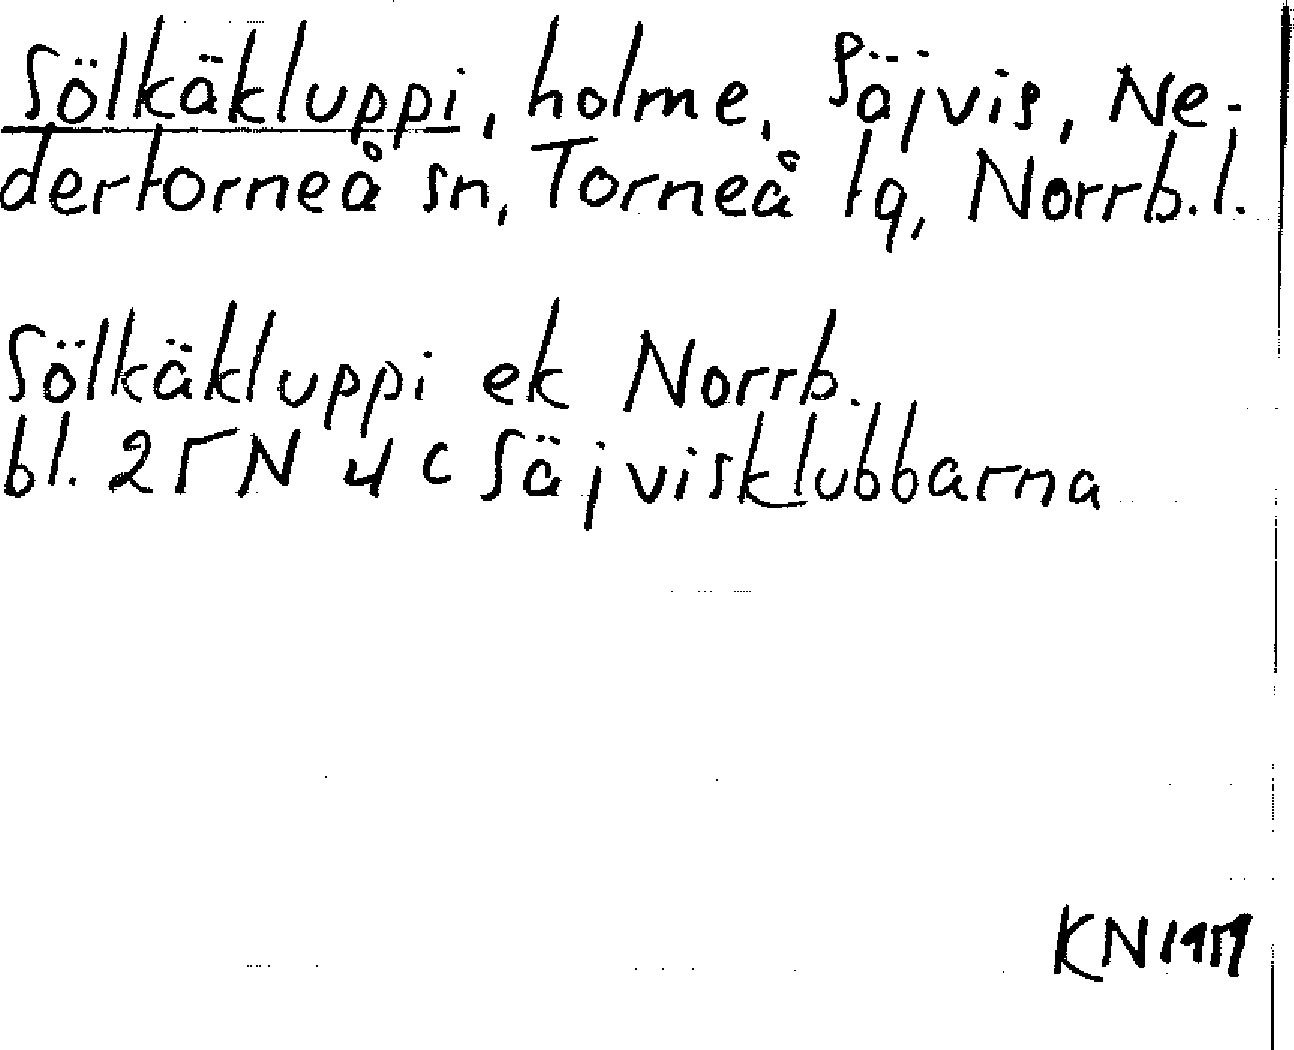 Sölkäkluppi, holme, Säjvis, Ne-
dertorneå sn, Torneå tg, Norrb.l.
Sölkäkluppi ek Norrb.
bl. 25 N 4 c Säjvisklubbarna
KN